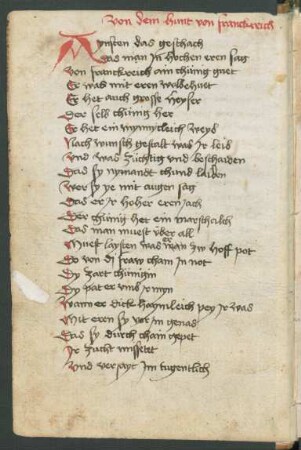 Von dem hunt von franckreich
Aynsten das geschach
Das man In hochen eren sag
Von franckreich ain chünig guet
Er was mit eren wolbehuet
Er het auch grosse
Der selb chünig her
Er het ein mynnicleich weyb
Nach wunsch gestalt was Ir leib
Und was züchtig vnd beschaiden
Das sy nymandt chund laiden
Wer sy ye mit augen sag
Das er Ir hoher eren Jach
Der chünig het ein marschalch
Das man muest über all
Muest laysten was er Im hoff pot
Do von dj fraw cham In not
Dy zart chünigin
Dy pat er vmb Ir myn
Wann er dick haymleich pey Ir was
Mit eren sy vor Im genas
Das sy durch chain gepet
Ir zucht missetet
Vnd versayt Im tugentlich